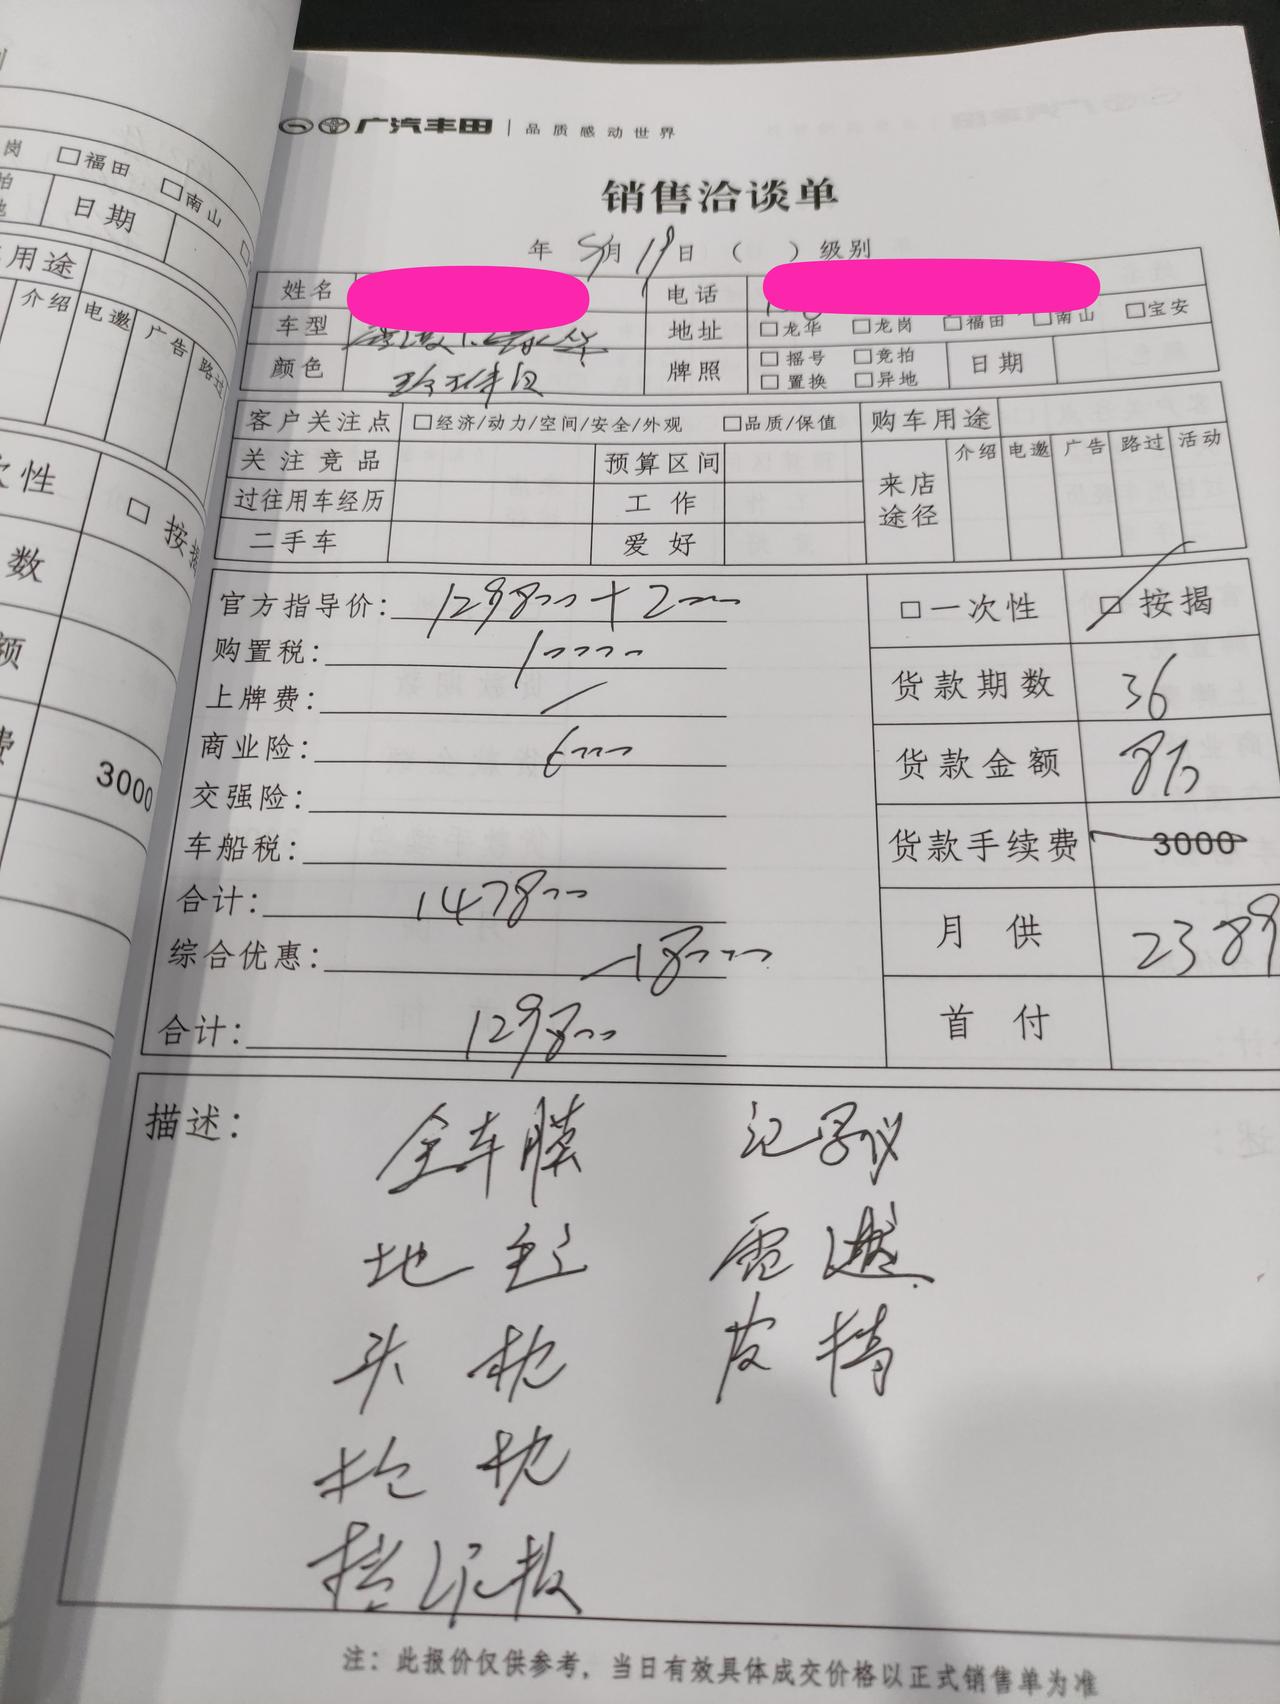 广汽丰田 | 品质感动世界
销售洽谈单
年 5月19日 ( ) 级别
姓名 电话
车型 地址 □龙华 □龙岗 □福田 □南山 □宝安
颜色 牌照 □摇号 □竞拍 □置换 □异地 日期
客户关注点 □经济/动力/空间/安全/外观 □品质/保值 购车用途
关注竞品 预算区间 来店途径 介绍 电邀 广告 路过 活动
过往用车经历 工作
二手车 爱好
官方指导价: 129800+2000 □一次性 □按揭
购置税: 10000 货款期数 36
上牌费: /
商业险: 6000 货款金额 8万
交强险:
车船税: 货款手续费 3000
合计: 147800 月供 2389
综合优惠: -18000
合计: 129800 首付
描述:
全车膜 记录仪
地
头枕
抱枕
挡泥板
注: 此报价仅供参考, 当日有效具体成交价格以正式销售单为准
岗 □福田 □南山
日期
用途
介绍 电邀 广告 路过
次性 □按
数
额
费 3000